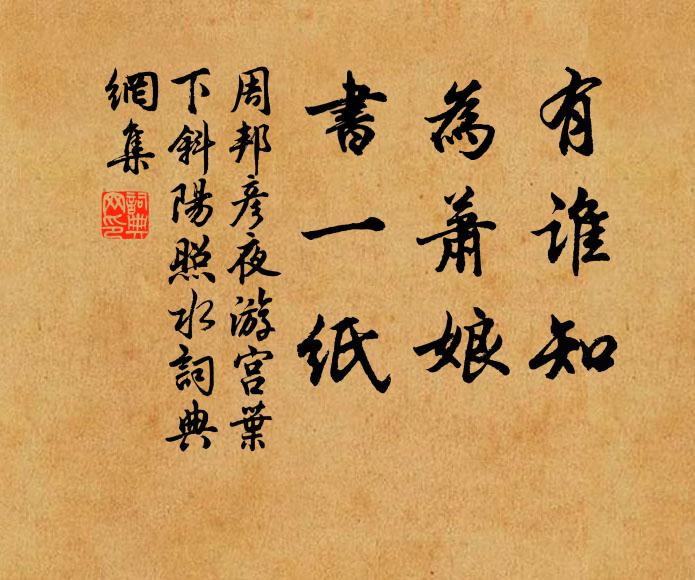 有谁知
為蕭娘
書一紙
周邦彥夜游宮葉
下斜陽照水詞典
網集
詞典
网印